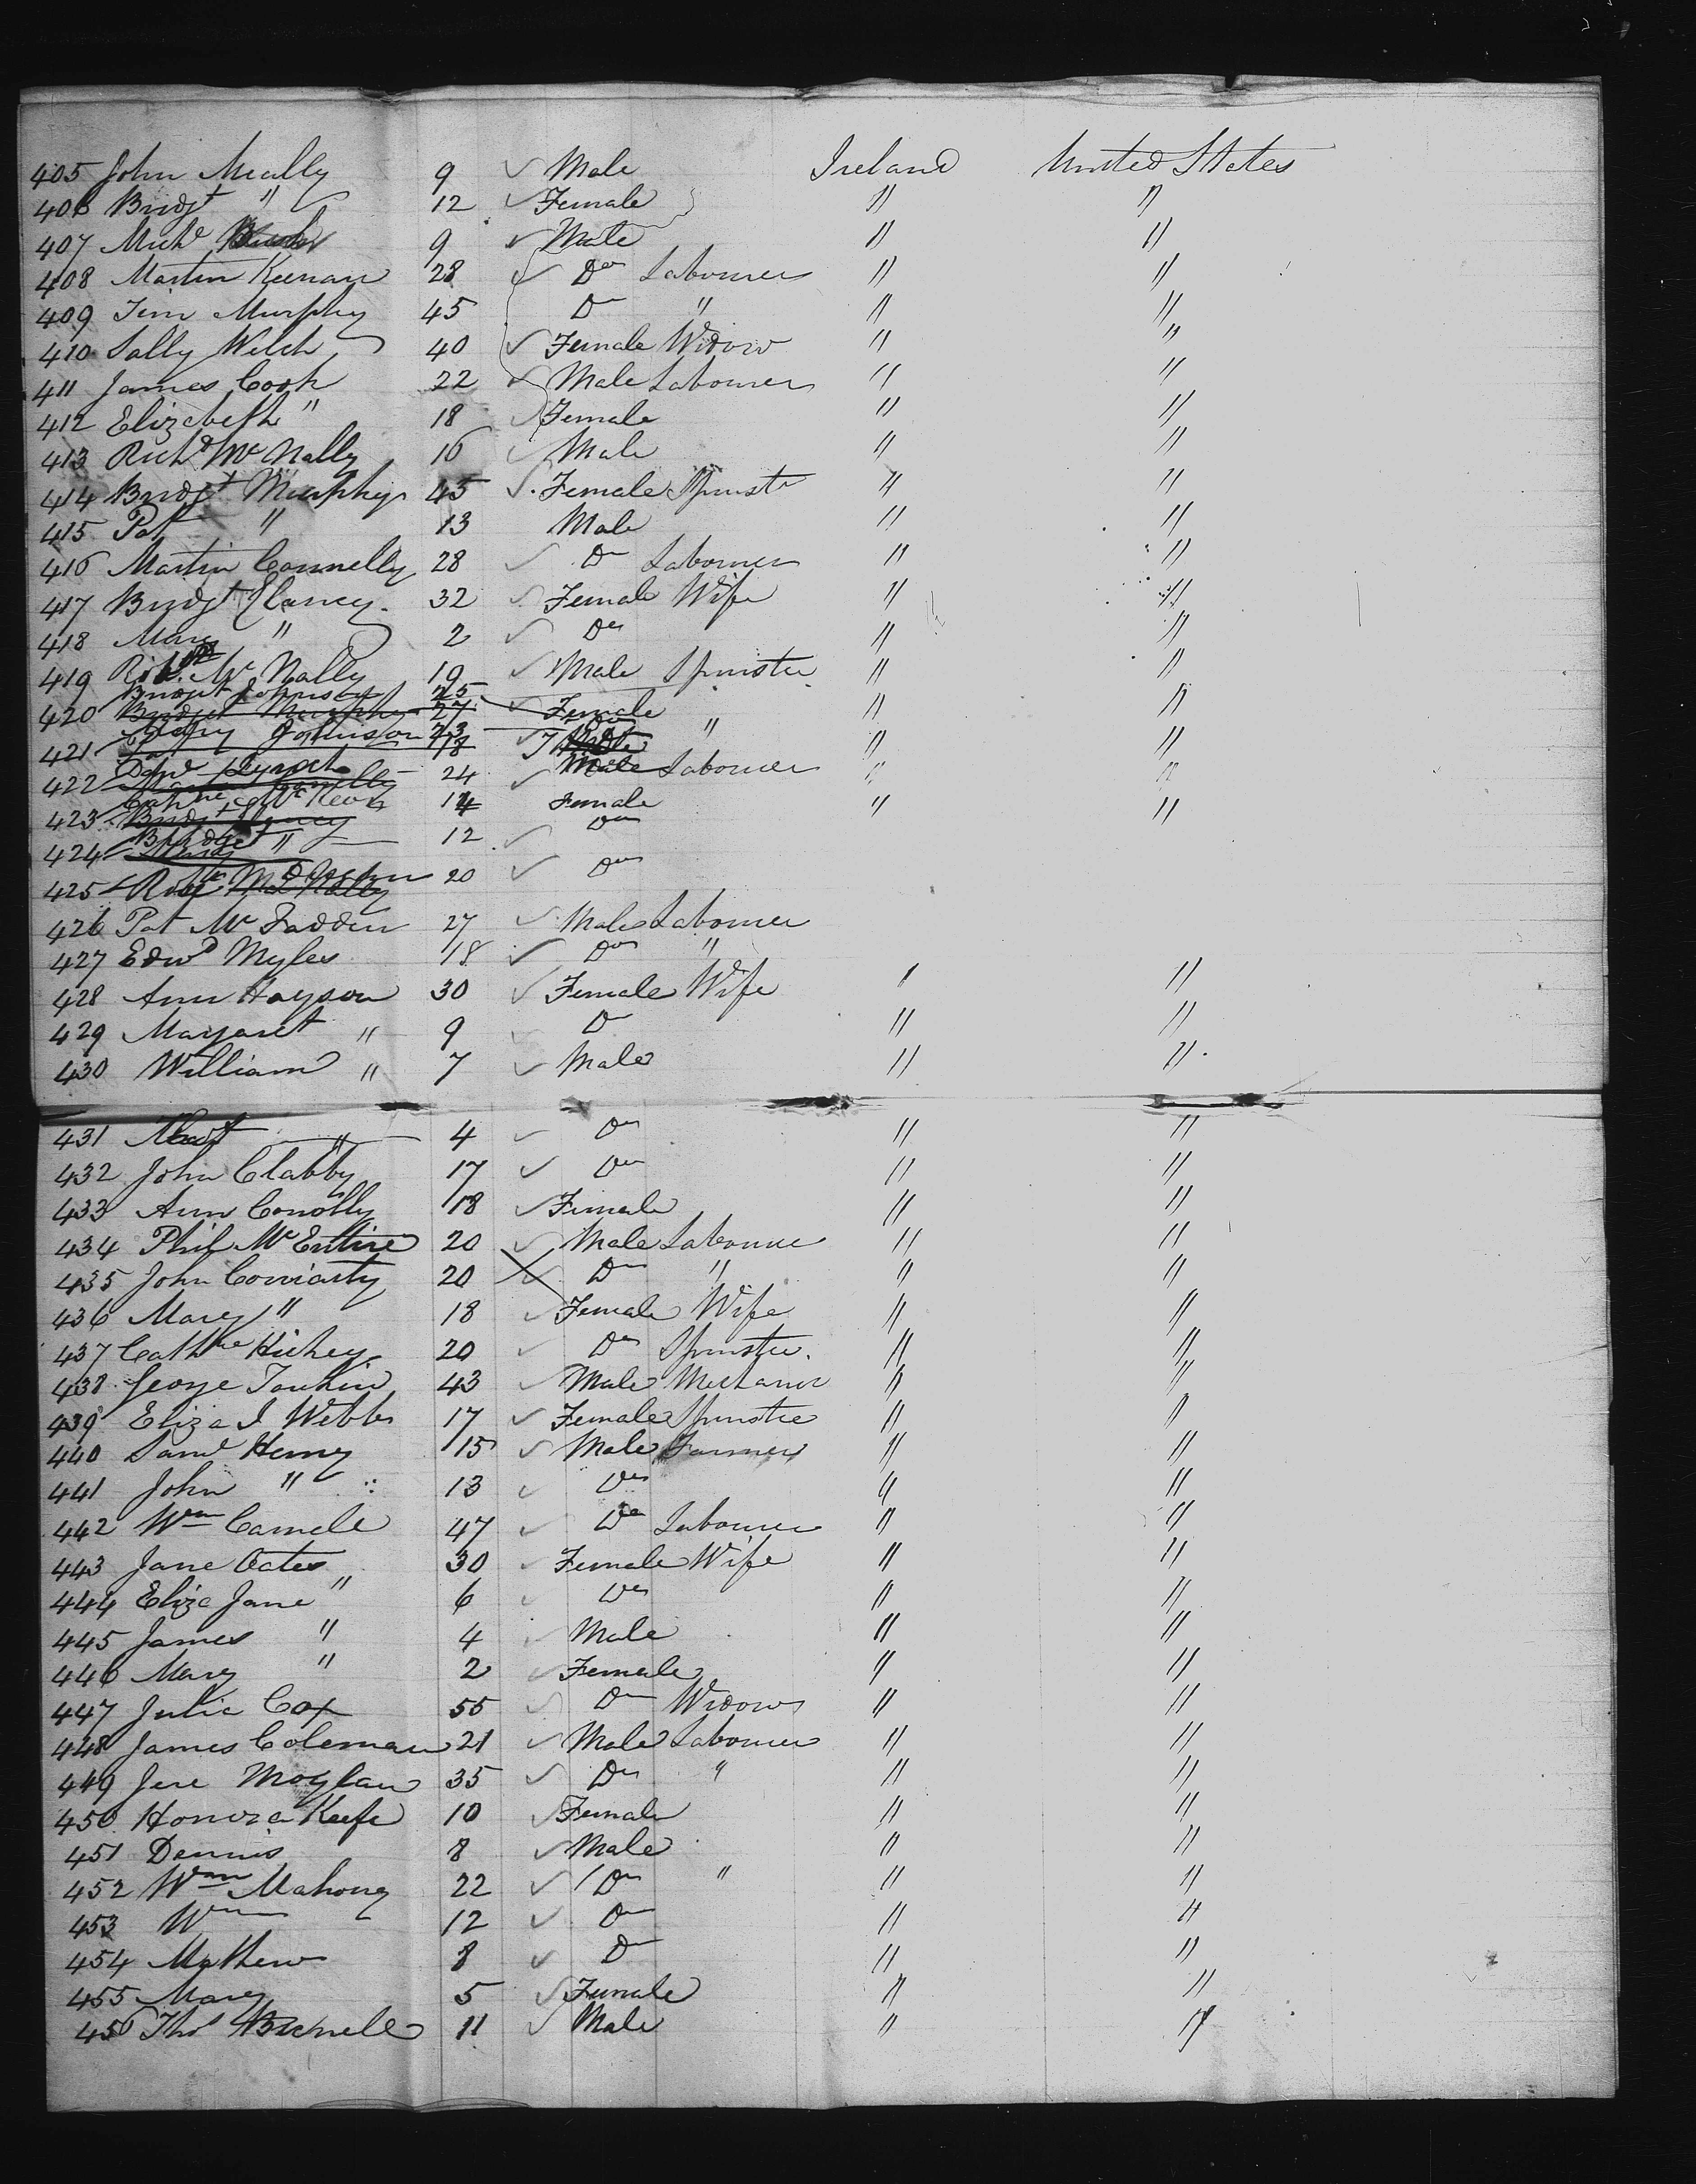 405 John Mcally 9 ✓ Male Ireland United States
406 Bridgt " 12 ✓ Female " "
407 Michl 9 ✓ Male " "
408 Martin Keenan 28 ✓ Do Labourer " "
409 Jim Murphy 45 Do " " "
410 Sally Welch 40 ✓ Female Widow " "
411 James Cook 22 ✓ Male Labourer " "
412 Elizabeth " 18 ✓ Female " "
413 Richd McNally 16 ✓ Male " "
414 Bridgt Murphy 45 ✓ Female Spinstr " "
415 Pat " 13 Male " "
416 Martin Connelly 28 ✓ Do Labourer " "
417 Bridgt Clancy 32 ✓ Female Wife " "
418 Mary " 2 ✓ Do " "
419 McNally 19 ✓ Male Spinster " "
420 Bridget Johnson 25 ✓ Female " "
421 Mary Johnson 23 ✓ " " "
422 Lynch 24 ✓ Male Labourer " "
423 Cathne McKeon 14 Female " "
424 Bridget " 12 ✓ Do
425 Rose 20 ✓ Do
426 Pat McFadden 27 ✓ Male Labourer
427 Edwd Myles 18 ✓ Do "
428 Ann Hayson 30 ✓ Female Wife " "
429 Margaret " 9 ✓ Do " "
430 William " 7 ✓ Male " "
431 " 4 ✓ Do " "
432 John Clabby 17 ✓ Do " "
433 Ann Conolly 18 ✓ Female " "
434 Phil McEntire 20 ✓ Male Labourer " "
435 John Conriarty 20 ✓ Do " " "
436 Mary " 18 ✓ Female Wife " "
437 Cathne Hickey 20 ✓ Do Spinster " "
438 George Tonkin 43 ✓ Male Mechanic " "
439 Eliza J Webb 17 ✓ Female Spinster " "
440 Saml Henry 15 ✓ Male Farmer " "
441 John " 13 ✓ Do " "
442 Wm Camele 47 ✓ Do Labourer " "
443 Jane Oates 30 ✓ Female Wife " "
444 Eliza Jane " 6 ✓ Do " "
445 James " 4 ✓ Male " "
446 Mary " 2 ✓ Female " "
447 Julia Cox 55 ✓ Do Widow " "
448 James Coleman 21 ✓ Male Labourer " "
449 Jere Moylan 35 ✓ Do " " "
450 Honora Keefe 10 ✓ Female " "
451 Dennis 8 ✓ Male " "
452 Wm Mahony 22 ✓ Do " " "
453 Wm 12 ✓ Do " "
454 Mathew 8 ✓ Do " "
455 Mary 5 ✓ Female " "
456 Thos 11 ✓ Male " "